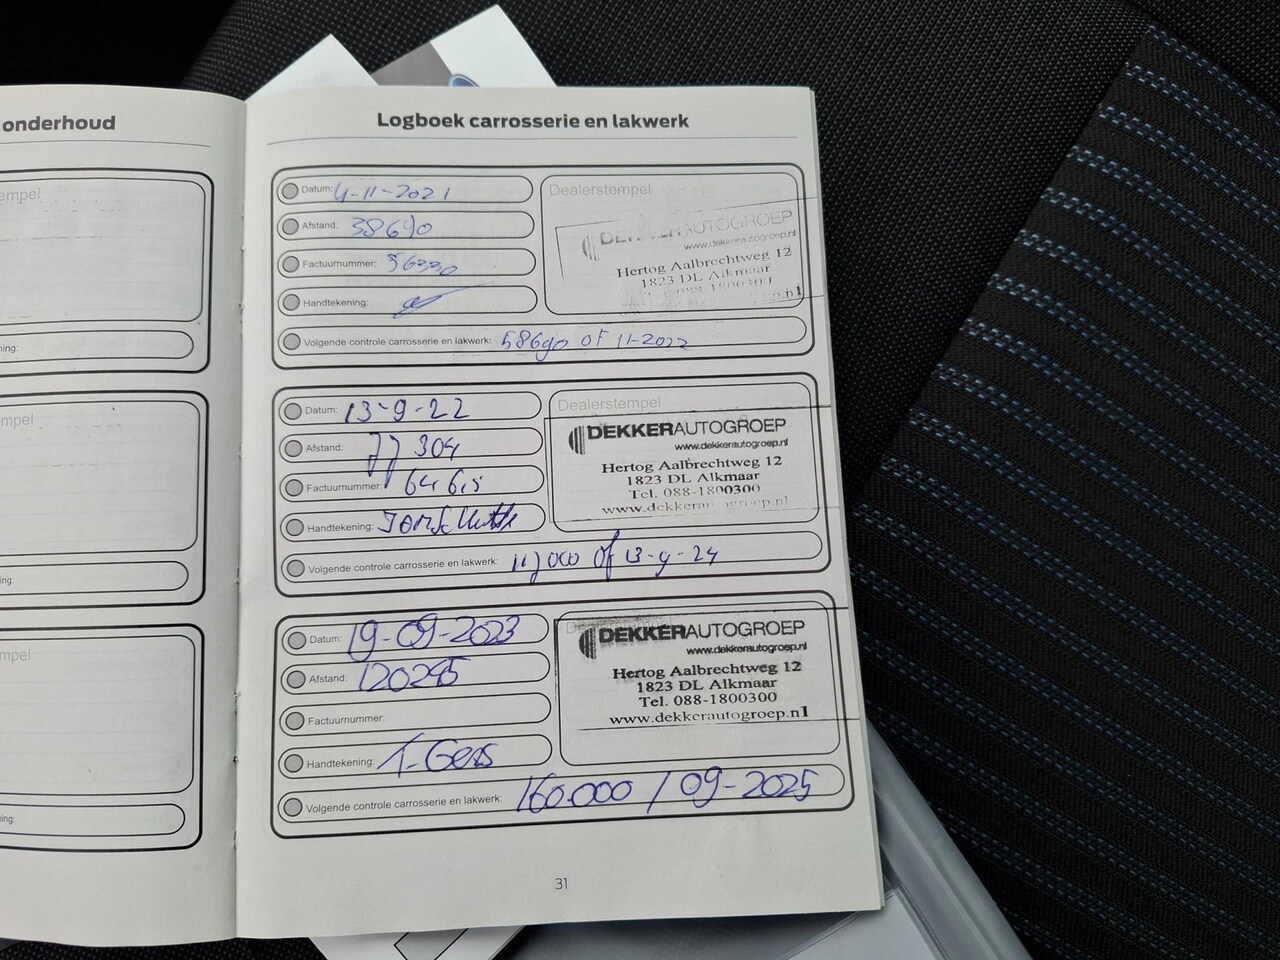 onderhoud
empel
ning:
empel
ning:
mpel
ning:
Logboek carrosserie en lakwerk
Datum: 4-11-2021
Afstand: 38690
Factuurnummer: 56330
Handtekening:
Volgende controle carrosserie en lakwerk: 58690 of 11-2022
Dealerstempel
DEKKERAUTOGROEP
www.dekkerautogroep.nl
Hertog Aalbrechtweg 12
1823 DL Alkmaar
Tel. 088-1800300
Datum: 13-9-22
Afstand: 77304
Factuurnummer:
Handtekening:
Volgende controle carrosserie en lakwerk: 117000 of 13-9-24
Dealerstempel
DEKKERAUTOGROEP
www.dekkerautogroep.nl
Hertog Aalbrechtweg 12
1823 DL Alkmaar
Tel. 088-1800300
www.dekkerautogroep.nl
Datum: 19-09-2023
Afstand: 120245
Factuurnummer:
Handtekening:
Volgende controle carrosserie en lakwerk: 160.000 / 09-2025
DEKKERAUTOGROEP
www.dekkerautogroep.nl
Hertog Aalbrechtweg 12
1823 DL Alkmaar
Tel. 088-1800300
www.dekkerautogroep.nl
31